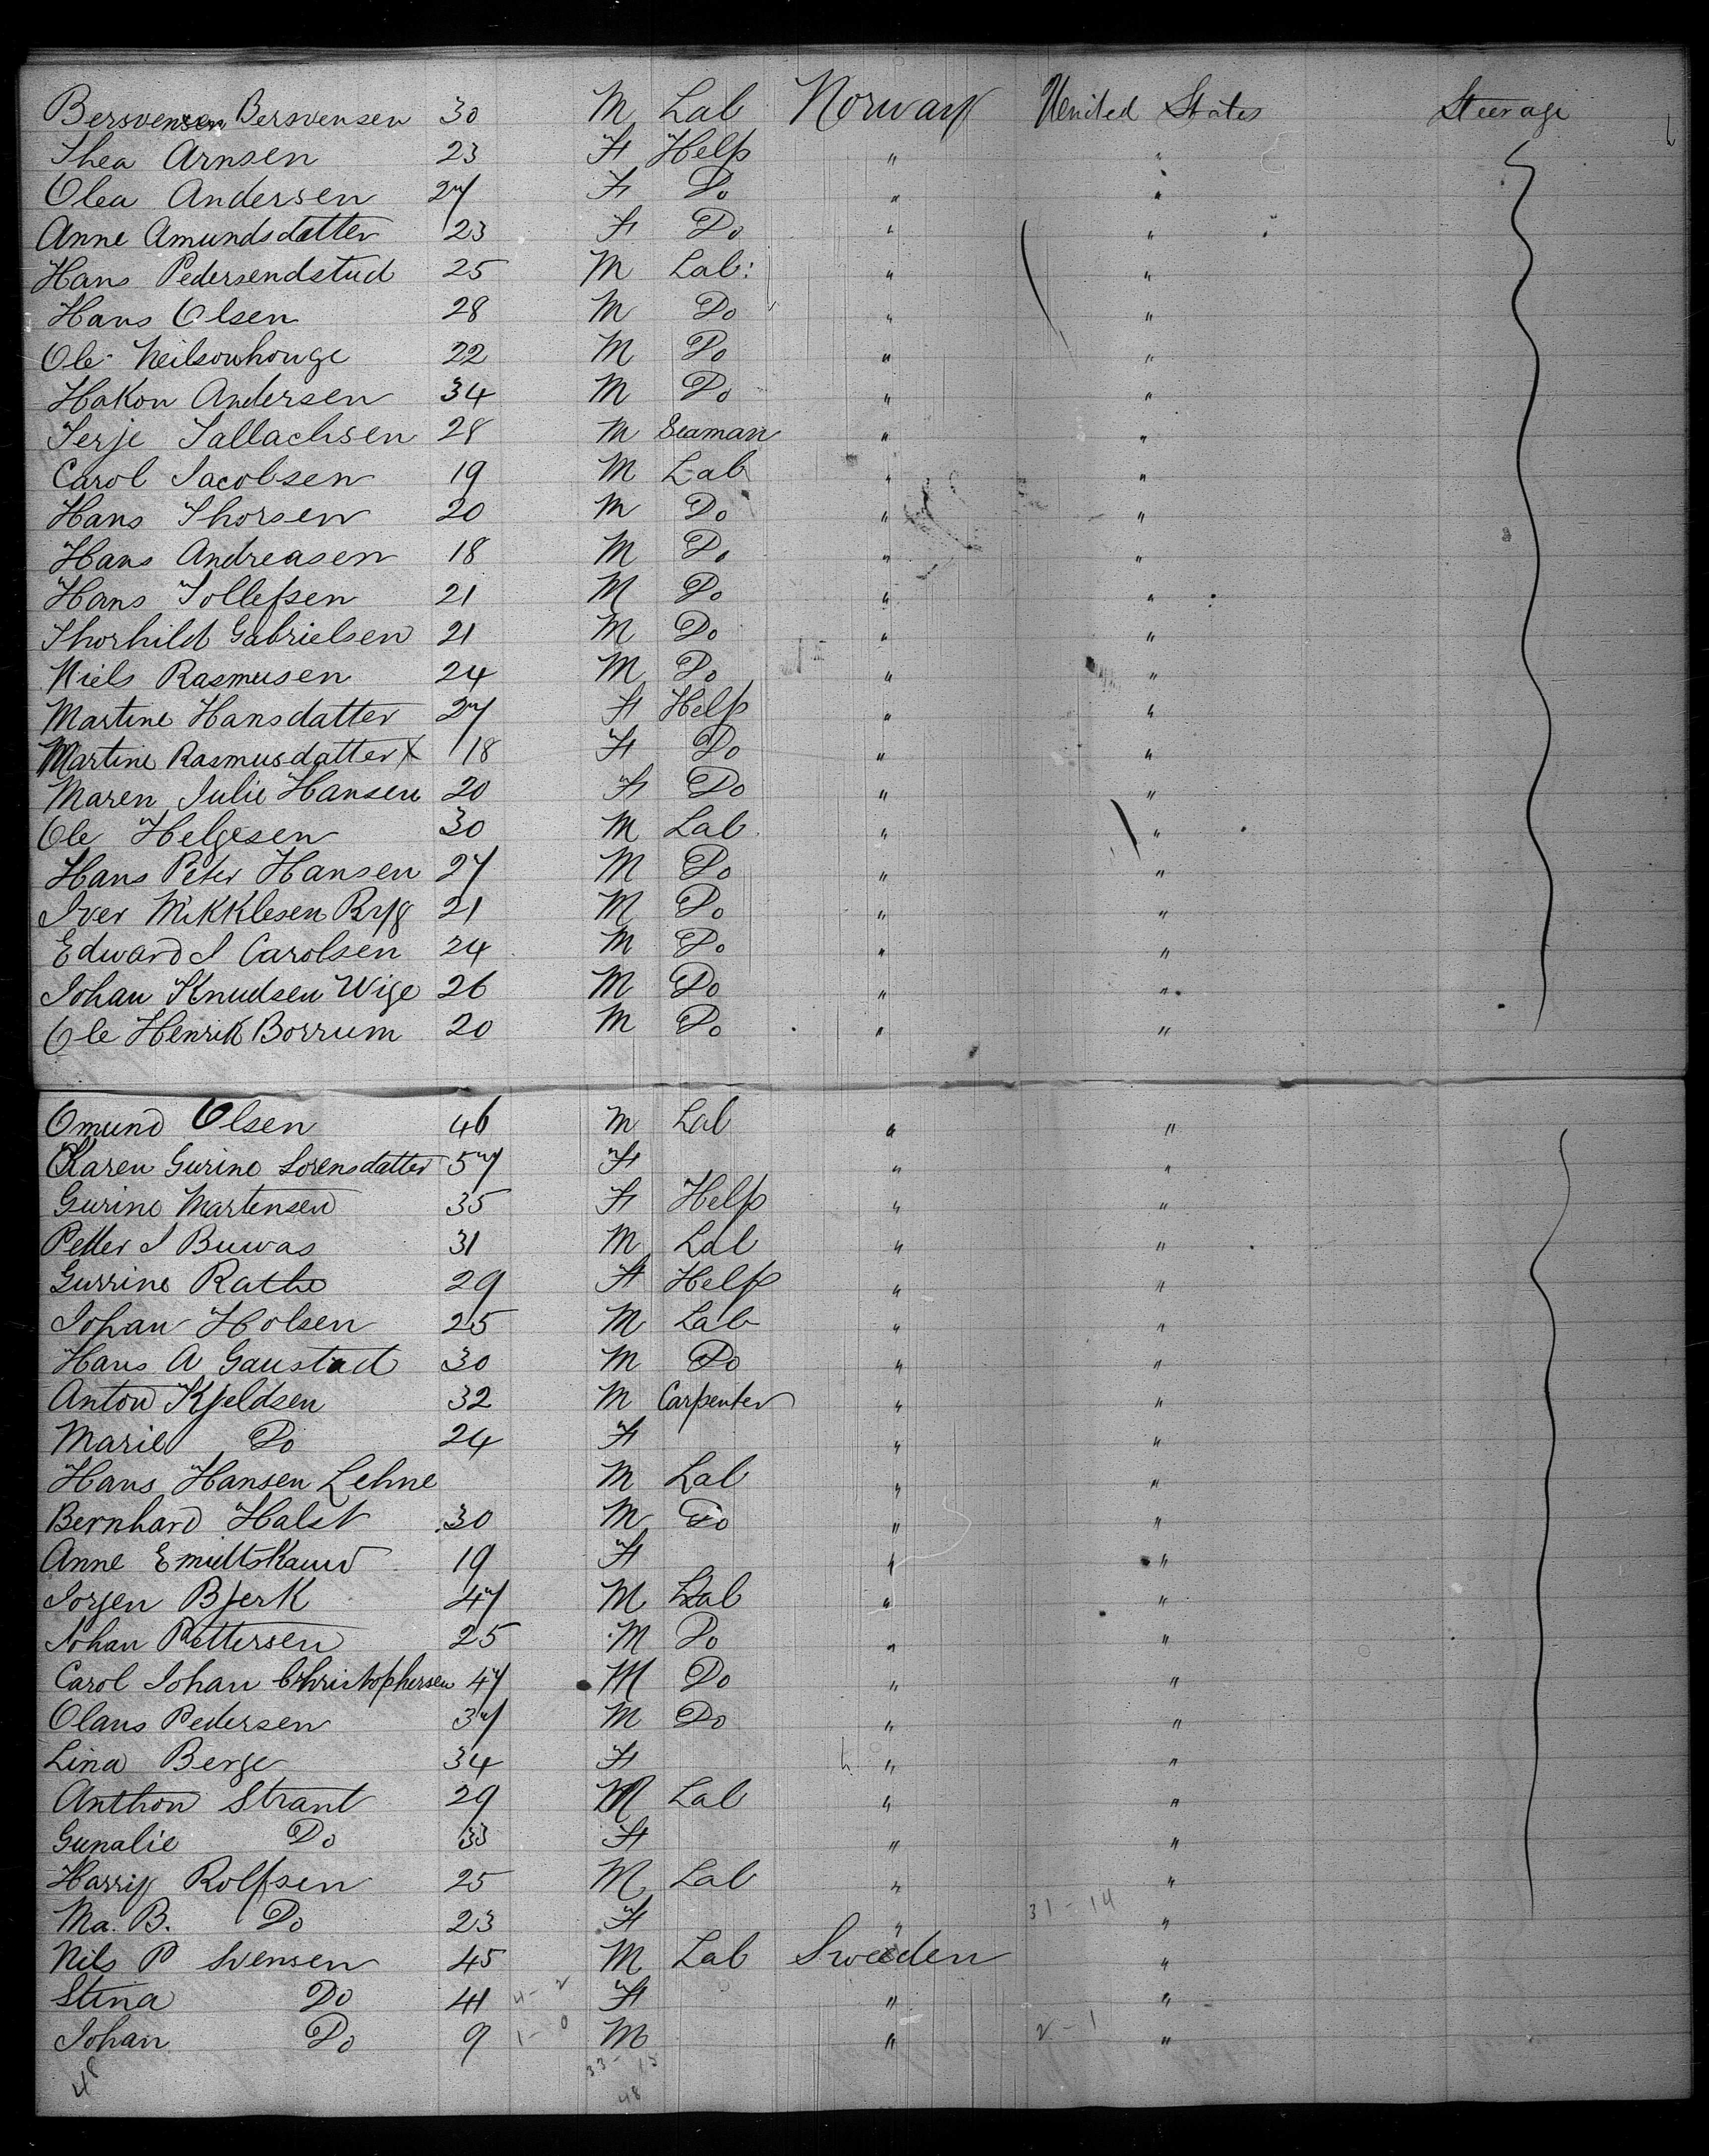 Bersvensen Bersvensen 30 M Lab Norway United States Steerage
Thea Arnsen 23 F Help " "
Olea Andersen 27 F Do " "
Anne Amundsdatter 23 F Do " "
Hans Pedersendstud 25 M Lab: " "
Hans Olsen 28 M Do " "
Ole Neilsonhouge 22 M Do " "
Hakon Andersen 34 M Do " "
Terje Tallachsen 28 M Seaman " "
Carol Jacobsen 19 M Lab " "
Hans Thorsen 20 M Do " "
Hans Andreasen 18 M Do " "
Hans Tollefsen 21 M Do " "
Thorhild Gabrielsen 21 M Do " "
Niels Rasmusen 24 M Do " "
Martine Hansdatter 27 F Help " "
Martine Rasmusdatter X 18 F Do " "
Maren Julie Hansen 20 F Do " "
Ole Helgesen 30 M Lab " "
Hans Peter Hansen 27 M Do " "
Iver Mikklesen Ryg 21 M Do " "
Edward I Carolsen 24 M Do " "
Johan Knudsen Wige 26 M Do " "
Ole Henrik Borrum 20 M Do " "
Omund Olsen 46 M Lab " "
Karen Gurine Lorensdatter 57 F " "
Gurine Martensen 35 F Help " "
Petter I Buwas 31 M Lab " "
Gurrine Rathe 29 F Help " "
Johan Holsen 25 M Lab " "
Hans A Gaustad 30 M Do " "
Anton Kjeldsen 32 M Carpenter " "
Marie Do 24 F " "
Hans Hansen Lehne M Lab " "
Bernhard Halst 30 M Do " "
Anne 19 F " "
Jorgen Bjerk 47 M Lab " "
Johan Pettersen 25 M Do " "
Carol Johan Christophersen 47 M Do " "
Olaus Pedersen 37 M Do " "
Lina Berge 34 F " "
Anthon Strant 29 M Lab " "
Gunalie Do 33 F " "
Harrip Rolfsen 25 M Lab " "
Ma. B. Do 23 F " 31-14 "
Nils P Svensen 45 M Lab Sweden "
Stina Do 41 4-2 F " "
Johan Do 9 1-0 M " 2-1 "
48 33-15
48